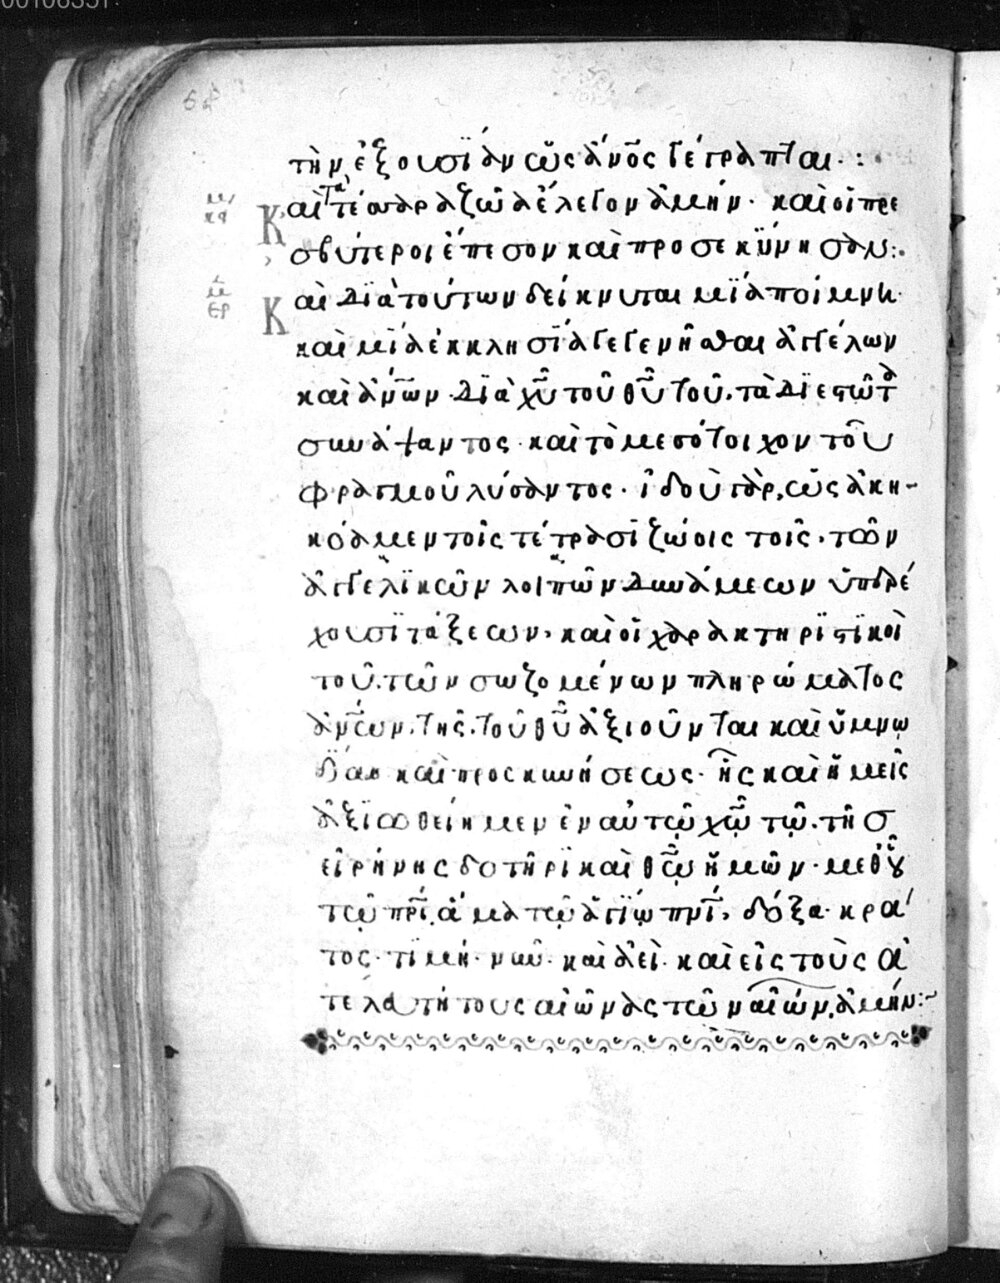 τὴν ἐξουσίαν ὡς ἄνος γέγραπται·:
Καὶ τὰ τέσσαρα ζῶα ἔλεγον ἀμήν· καὶ οἱ πρε
σβύτεροι ἔπεσον καὶ προσεκύνησαν:·
Καὶ διὰ τούτων δείκνυται μία ποίμνη·
καὶ μία ἐκκλησία γεγενῆσθαι ἀγγέλων
καὶ ἀνων· διὰ χυ τοῦ θυ τοῦ, τὰ διεστῶτα
συνάψαντος· καὶ τὸ μεσότοιχον τοῦ
φραγμοῦ λύσαντος· ἰδοὺ γὰρ, ὡς ἀκη-
κόαμεν τοῖς τέτρασι ζώοις τοῖς, τῶν
ἀγγελικῶν λοιπῶν δυνάμεων ὑπερέ
χουσι τάξεων, καὶ οἱ χαρακτηριστικοὶ
τοῦ, τῶν σωζομένων πληρώματος
ἀνων, τῆς, τοῦ θυ ἀξιοῦνται καὶ ὕμνω
δίαν καὶ προσκυνήσεως· ἧς καὶ ἡμεῖς
ἀξιωθείημεν ἐν αὐτῷ χῷ τῷ, τῆσ
εἰρήνης δοτῆρι καὶ θῷ ἡμῶν· μεθ' οὗ
τῷ πρι, ἅμα τῷ ἁγίῳ πνι, δόξα· κρά
τος· τιμή· νῦν· καὶ ἀεὶ· καὶ εἰς τοὺς ἀ
τελευτήτους αἰῶνας τῶν αἰώνων, ἀμήν:~